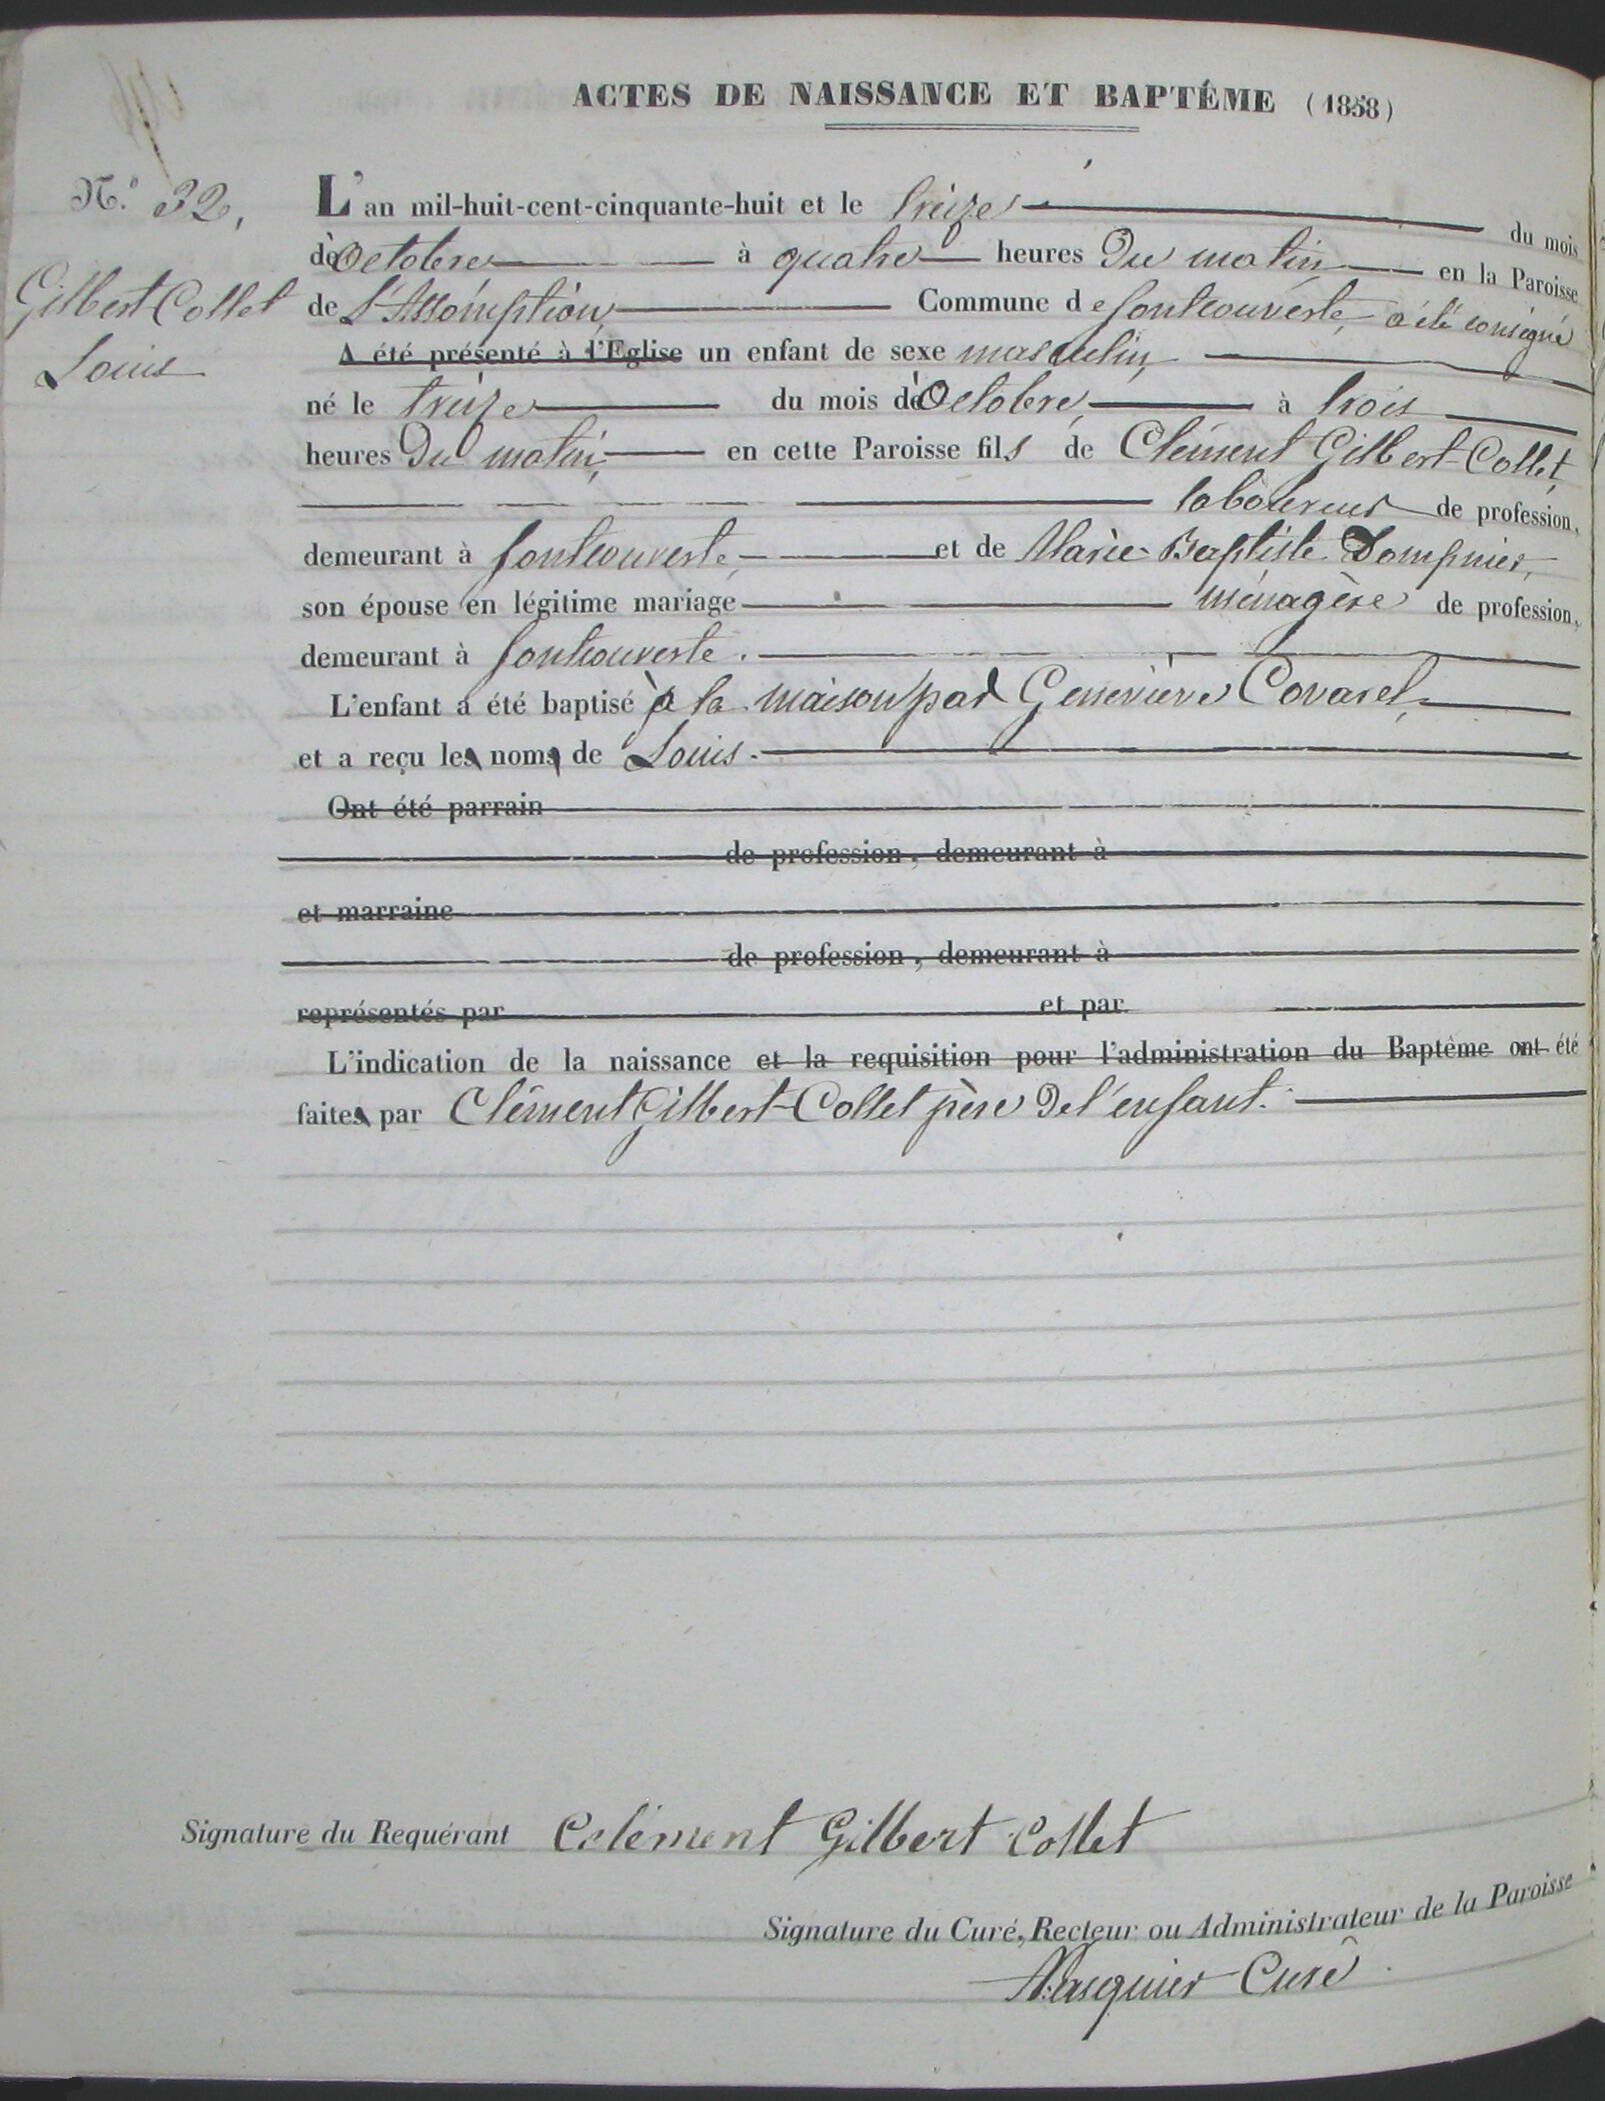 ACTES DE NAISSANCE ET BAPTÊME (1858)
N.° 32,
Gilbert Collet
Louis
L'an mil-huit-cent-cinquante-huit et le treize du mois
d'Octobre à quatre heures Du matin en la Paroisse
de L'Assomption, Commune de fontcouverte, a été consigné
A été présenté à l'Eglise un enfant de sexe masculin,
né le treize du mois d'Octobre, à trois
heures Du matin, en cette Paroisse fils de Clément Gilbert-Collet,
laboureur de profession,
demeurant à fontcouverte, et de Marie-Baptiste Dompnier,
son épouse en légitime mariage ménagère de profession,
demeurant à fontcouverte.
L'enfant a été baptisé à la maison par Geneviève Covarel,
et a reçu le nom de Louis.
Ont été parrain
de profession, demeurant à
et marraine
de profession, demeurant à
représentés par et par
L'indication de la naissance et la requisition pour l'administration du Baptême ont été
faite par Clément Gilbert-Collet père De l'enfant.
Signature du Requérant Celément Gilbert Collet
Signature du Curé, Recteur ou Administrateur de la Paroisse
Curé